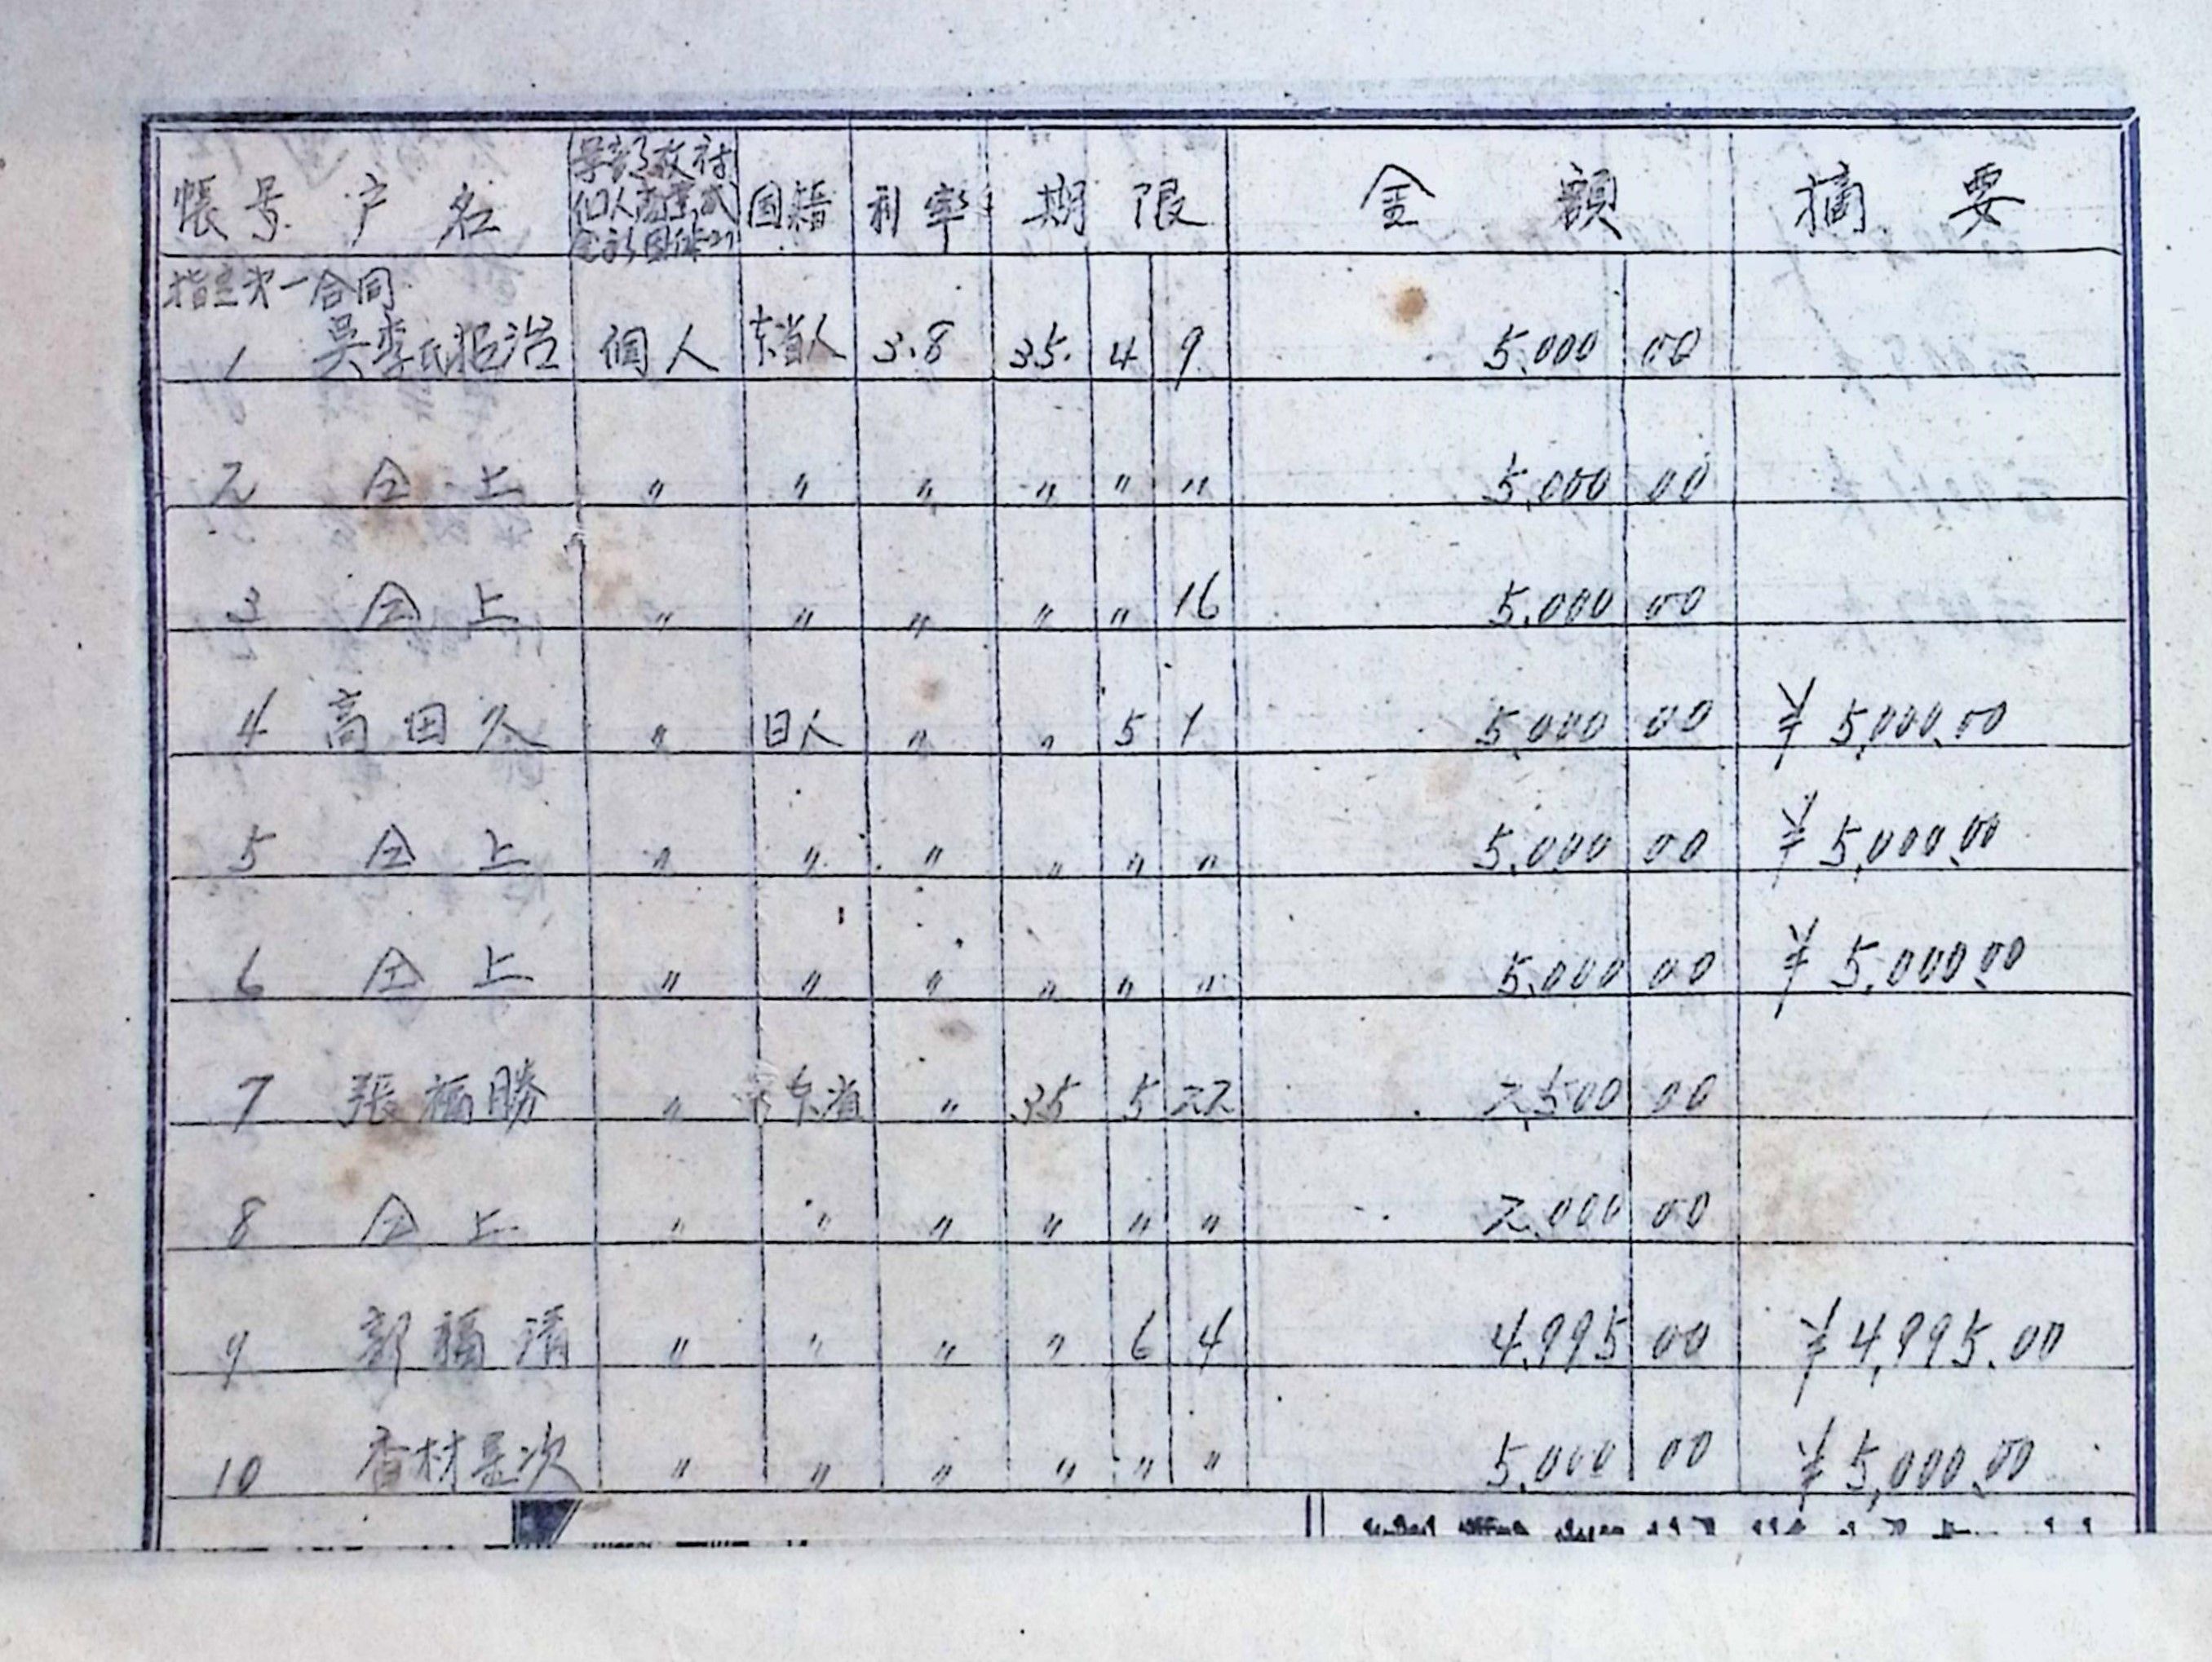 帳号 户名 国籍 利率 期限 金額 摘要
指定第一合同
1 吳李氏招治 個人 本省人 3.8 35. 4 9 5.000 00
2 仝上 〃 〃 〃 〃 〃 〃 5,000 00
3 仝上 〃 〃 〃 〃 〃 16 5.000 00
4 高田久 〃 日人 〃 〃 5 1 5.000 00 ¥ 5,000.00
5 仝上 〃 〃 〃 〃 〃 〃 5.000 00 ¥ 5,000.00
6 仝上 〃 〃 〃 〃 〃 〃 5.000 00 ¥ 5.000.00
7 張福勝 〃 本省 〃 35 5 22 2,500 00
8 仝上 〃 〃 〃 〃 〃 〃 2.000 00
9 郭福清 〃 〃 〃 〃 6 4 4.995 00 ¥4,995.00
10 〃 〃 〃 〃 〃 〃 5.000 00 ¥5,000.00